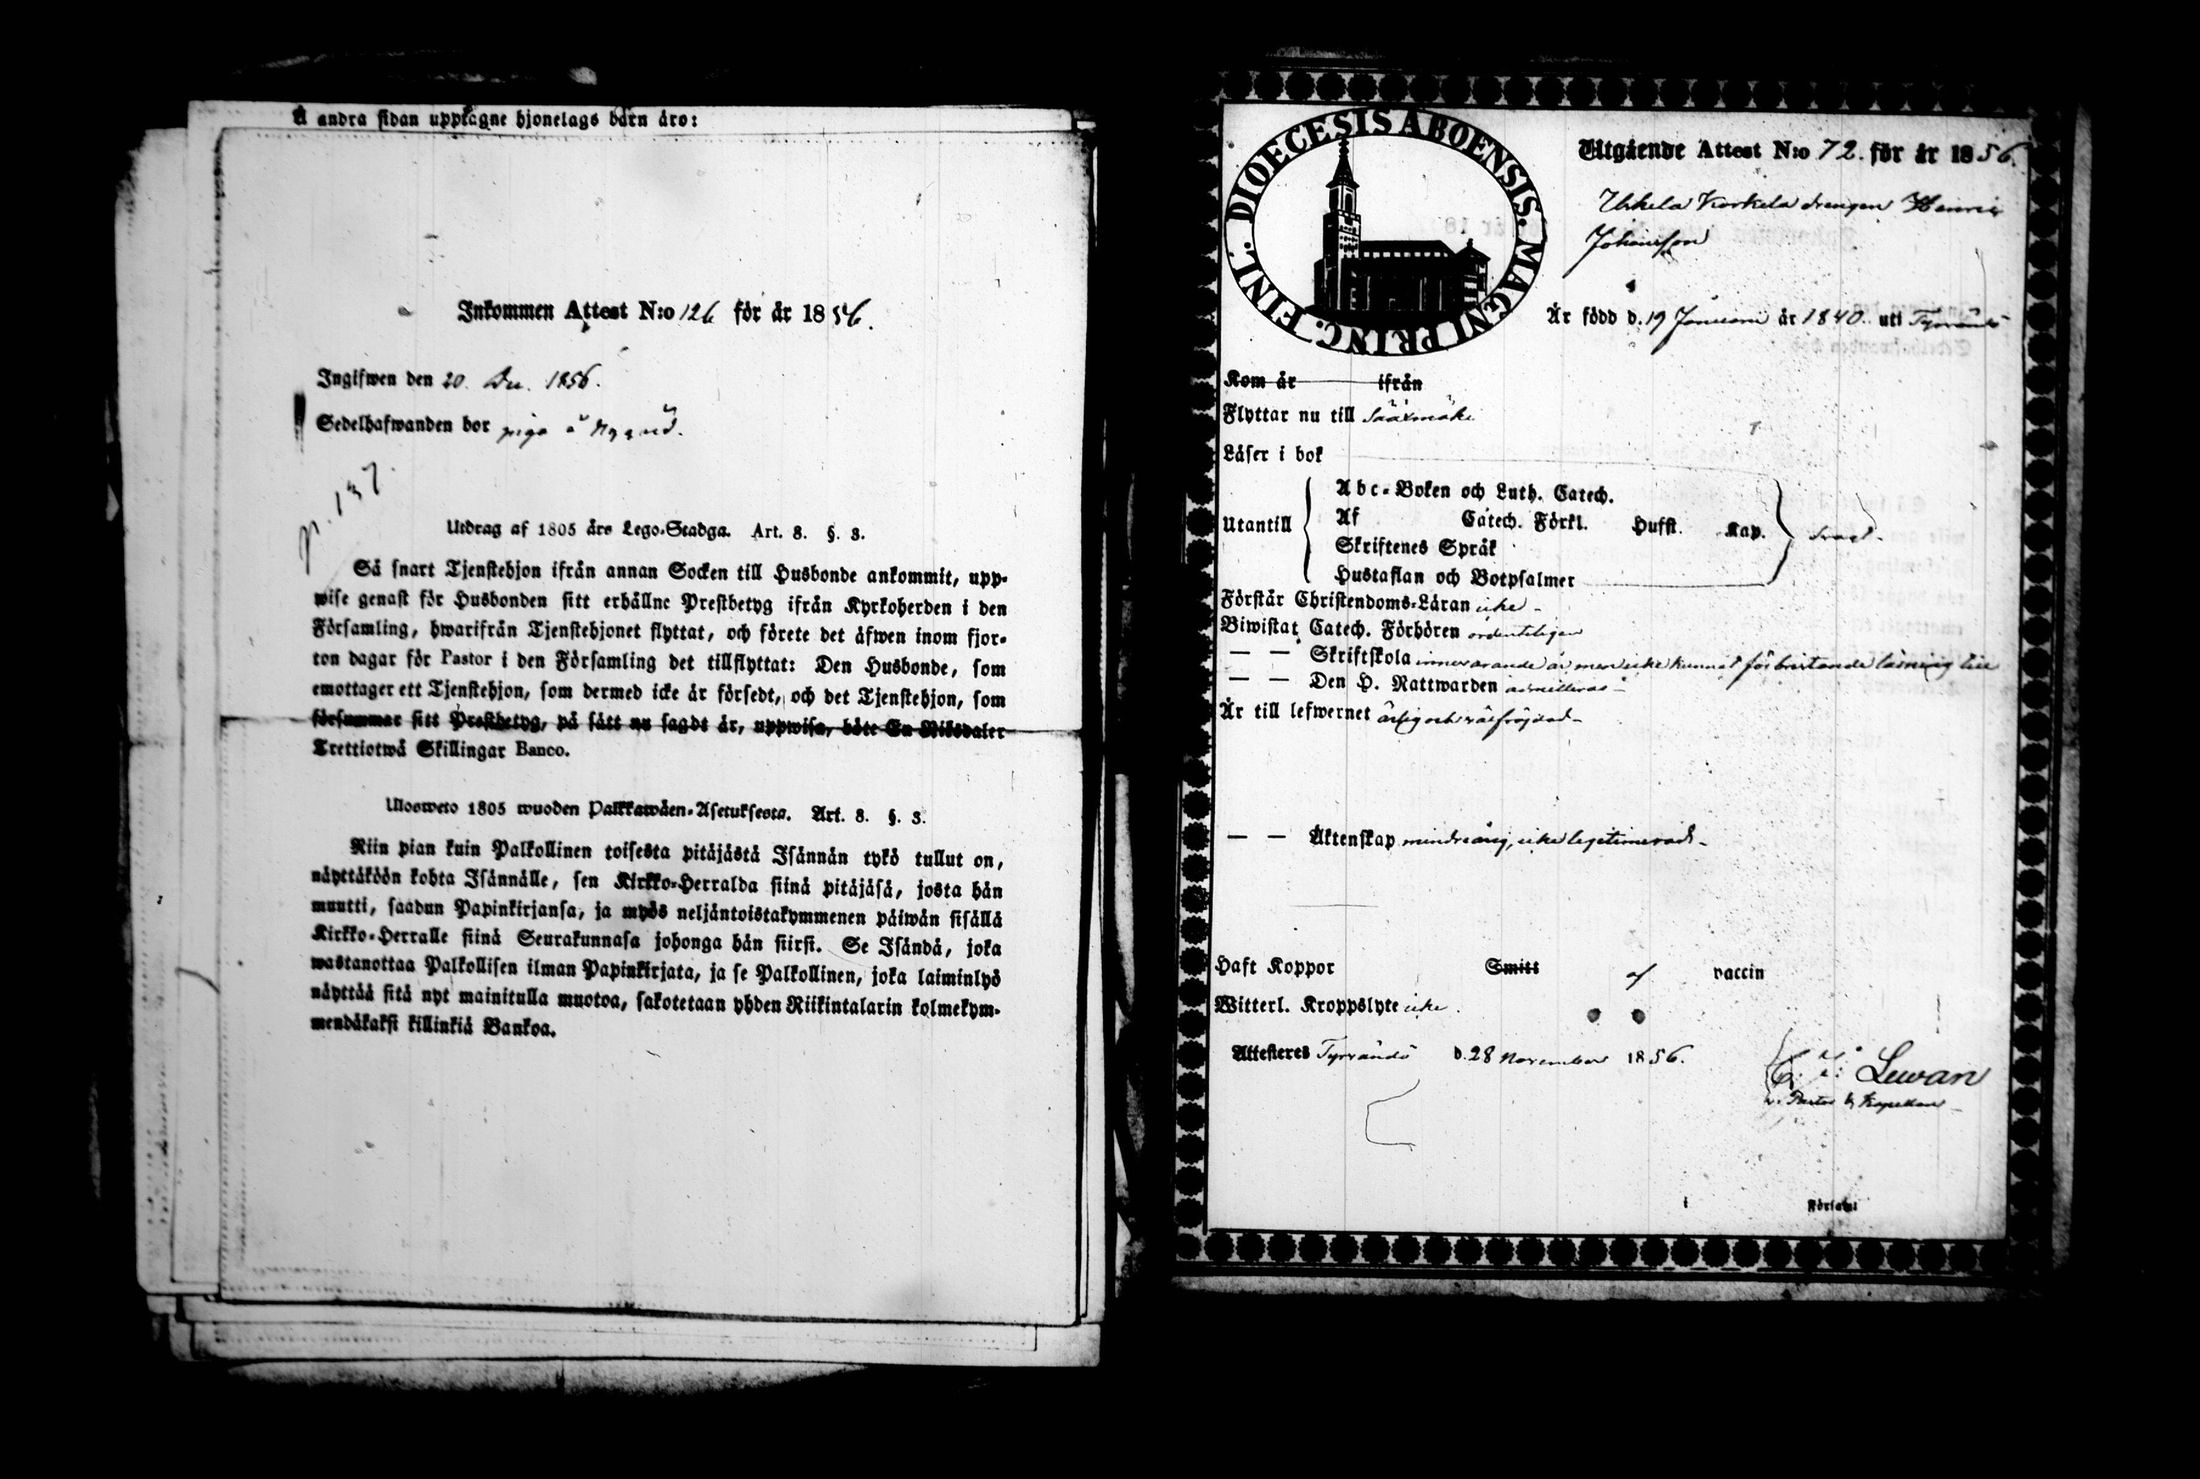 Å andra sidan upptagne hjonelags barn äro:
Inkommen Attest N:o 126 för år 1856.
Ingifwen den 20 Dec. 1856.
Sedelhafwanden bor piga å
p. 137.
Utdrag af 1805 års Lego-Stadga. Art. 8. §. 3.
Så snart Tjenstehjon ifrån annan Socken till Husbonde ankommit, upp-
wise genast för Husbonden sitt erhållne Prestbetyg ifrån Kyrkoherden i den
Församling, hwarifrån Tjenstehjonet flyttat, och förete det äfwen inom fjor-
ton dagar för Pastor i den Församling det tillflyttat: Den Husbonde, som
emottager ett Tjenstehjon, som dermed icke är försedt, och det Tjenstehjon, som
försummar sitt Prestbetyg, på sätt nu sagdt är, uppwisa, böte En Riksdaler
Trettiotwå Skillingar Banco.
Ulosweto 1805 wuoden Palkkawäen-Asetuksesta. Art. 8. §. 3.
Niin pian kuin Palkollinen toisesta pitäjästä Isännän tykö tullut on,
näyttäköön kohta Isännälle, sen Kirkko-Herralda siinä pitäjäsä, josta hän
muutti, saadun Papinkirjansa, ja myös neljäntoistakymmenen päiwän sisällä
Kirkko-Herralle siinä Seurakunnasa johonga hän siirsi. Se Isändä, joka
wastanottaa Palkollisen ilman Papinkirjata, ja se Palkollinen, joka laiminlyö
näyttää sitä nyt mainitulla muotoa, sakotetaan yhden Riikintalarin kolmekym-
mendäkaksi killinkiä Bankoa.
DIOECESIS ABOENSIS. MAGNI PRINC. FINL.
Utgående Attest N:o 72. för år 1856.
Urkela Korkela drengen Henric
Johansson
Är född d. 19 Januarii år 1840. uti Tyrvändö
Kom år ifrån
Flyttar nu till Sääxmäki
Läser i bok
Utantill
Abc-Boken och Luth. Catech.
Af Catech. Förkl. Hufst. Kap.
Skriftenes Språk
Hustaflan och Botpsalmer
svagt
Förstår Christendoms-Läran icke
Biwistat Catech. Förhören ordentligen
— — Skriftskola innevarande år men icke kunnat för bristande läsning till
— — Den H. Nattwarden admitteras
Är till lefwernet ärlig och välfrejdad
— — Äktenskap minderårig, icke legitimerad
Haft Koppor Smitt af vaccin
Witterl. Kroppslyte icke
Attesteres Tyrvändö d. 28 November 1856.
Lewan
v. Pastor & Kapellan
Församl